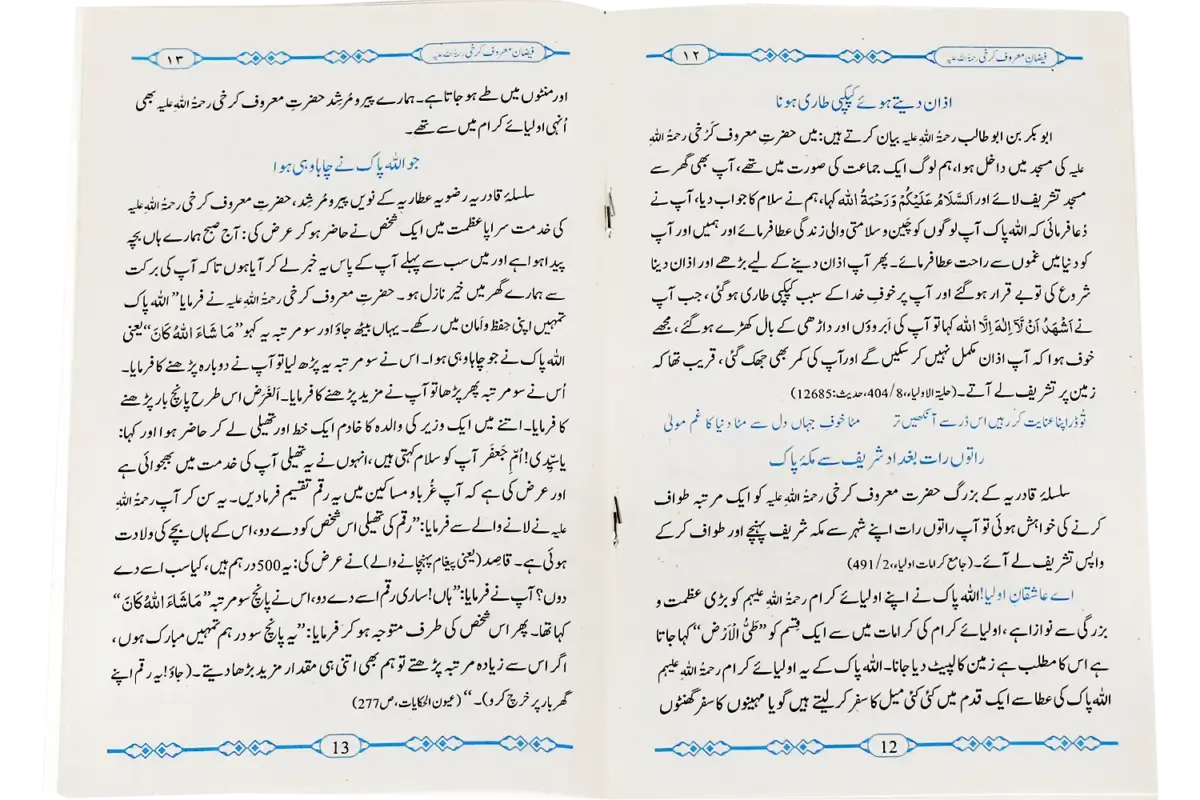 فیضان معروف کرخی رحمۃُ اللہِ علیہ
۱۲
اذان دیتے ہوئے کپکپی طاری ہونا
ابو بکر بن ابو طالب رحمۃُ اللہِ علیہ بیان کرتے ہیں: میں حضرتِ معروف کَرْخی رحمۃُ اللہِ
علیہ کی مسجد میں داخل ہوا، ہم لوگ ایک جماعت کی صورت میں تھے، آپ بھی گھر سے
مسجد تشریف لائے اور اَلسَّلَامُ عَلَیْکُمْ وَ رَحْمَۃُ اللہ کہا، ہم نے سلام کا جواب دیا، آپ نے
دُعا فرمائی کہ اللہ پاک آپ لوگوں کو چَین و سلامتی والی زندگی عطا فرمائے اور ہمیں اور آپ
کو دنیا میں غموں سے راحت عطا فرمائے۔ پھر آپ اذان دینے کے لیے بڑھے اور اذان دینا
شروع کی تو بے قرار ہو گئے اور آپ پر خوفِ خدا کے سبب کپکپی طاری ہو گئی، جب آپ
نے اَشْہَدُ اَنْ لَّاۤ اِلٰہَ اِلَّا اللہ کہا تو آپ کی اَبروؤں اور داڑھی کے بال کھڑے ہو گئے، مجھے
خوف ہوا کہ آپ اذان مکمل نہیں کر سکیں گے اور آپ کی کمر بھی جھک گئی، قریب تھا کہ
زمین پر تشریف لے آتے۔ (حلیۃ الاولیاء، 8/404، حدیث: 12685)
تُو ڈر اپنا عنایت کر رہیں اس ڈر سے آنکھیں تر مٹا خوف جہاں دل سے مٹا دنیا کا غم مولیٰ
راتوں رات بغداد شریف سے مکۂ پاک
سلسلۂ قادریہ کے بزرگ حضرت معروف کرخی رحمۃُ اللہِ علیہ کو ایک مرتبہ طواف
کرنے کی خواہش ہوئی تو آپ راتوں رات اپنے شہر سے مکہ شریف پہنچے اور طواف کر کے
واپس تشریف لے آئے۔ (جامع کرامات اولیاء، 2/491)
اے عاشقانِ اولیا! اللہ پاک نے اپنے اولیائے کرام رحمۃُ اللہِ علیہم کو بڑی عظمت و
بزرگی سے نوازا ہے، اولیائے کرام کی کرامات میں سے ایک قِسم کو ”طَیُّ الْاَرْض“ کہا جاتا
ہے اس کا مطلب ہے زمین کا لپیٹ دیا جانا۔ اللہ پاک کے یہ اولیائے کرام رحمۃُ اللہِ علیہم
اللہ پاک کی عطا سے ایک قدم میں کئی کئی میل کا سفر کر لیتے ہیں گویا مہینوں کا سفر گھنٹوں
12
فیضان معروف کرخی رحمۃُ اللہِ علیہ
۱۳
اور منٹوں میں طے ہو جاتا ہے۔ ہمارے پیر و مُرشِد حضرتِ معروف کرخی رحمۃُ اللہِ علیہ بھی
اُنہی اولیائے کرام میں سے تھے۔
جو اللہ پاک نے چاہا وہی ہوا
سلسلۂ قادریہ رضویہ عطاریہ کے نویں پیر و مُرشِد، حضرتِ معروف کرخی رحمۃُ اللہِ علیہ
کی خدمت سراپا عظمت میں ایک شخص نے حاضر ہو کر عرض کی: آج صبح ہمارے ہاں بچہ
پیدا ہوا ہے اور میں سب سے پہلے آپ کے پاس یہ خبر لے کر آیا ہوں تا کہ آپ کی برکت
سے ہمارے گھر میں خیر نازل ہو۔ حضرتِ معروف کرخی رحمۃُ اللہِ علیہ نے فرمایا ”اللہ پاک
تمہیں اپنی حِفظ و اَمان میں رکھے۔ یہاں بیٹھ جاؤ اور سو مرتبہ یہ کہو ”مَا شَاءَ اللہُ کَانَ“ یعنی
اللہ پاک نے جو چاہا وہی ہوا۔ اس نے سو مرتبہ یہ پڑھ لیا تو آپ نے دوبارہ پڑھنے کا فرمایا۔
اُس نے سو مرتبہ پھر پڑھا تو آپ نے مزید پڑھنے کا فرمایا۔ اَلغَرَض اس طرح پانچ بار پڑھنے
کا فرمایا۔ اتنے میں ایک وزیر کی والدہ کا خادم ایک خط اور تھیلی لے کر حاضر ہوا اور کہا:
یا سیّدی! اُمِّ جَعفَر آپ کو سلام کہتی ہیں، انہوں نے یہ تھیلی آپ کی خدمت میں بھجوائی ہے
اور عرض کی ہے کہ آپ غُربا و مساکین میں یہ رقم تقسیم فرما دیں۔ یہ سن کر آپ رحمۃُ اللہِ
علیہ نے لانے والے سے فرمایا: ”رقم کی تھیلی اس شخص کو دے دو، اس کے ہاں بچے کی ولادت
ہوئی ہے۔ قاصِد (یعنی پیغام پہنچانے والے) نے عرض کی: یہ 500 درہم ہیں، کیا سب اسے دے
دوں؟ آپ نے فرمایا: ”ہاں! ساری رقم اسے دے دو، اس نے پانچ سو مرتبہ ”مَا شَاءَ اللہُ کَانَ“
کہا تھا۔ پھر اس شخص کی طرف متوجہ ہو کر فرمایا: ”یہ پانچ سو درہم تمہیں مبارک ہوں،
اگر اس سے زیادہ مرتبہ پڑھتے تو ہم بھی اتنی ہی مقدار مزید بڑھا دیتے۔ (جاؤ! یہ رقم اپنے
گھر بار پر خرچ کرو)۔“ (عیون الحکایات، ص277)
13